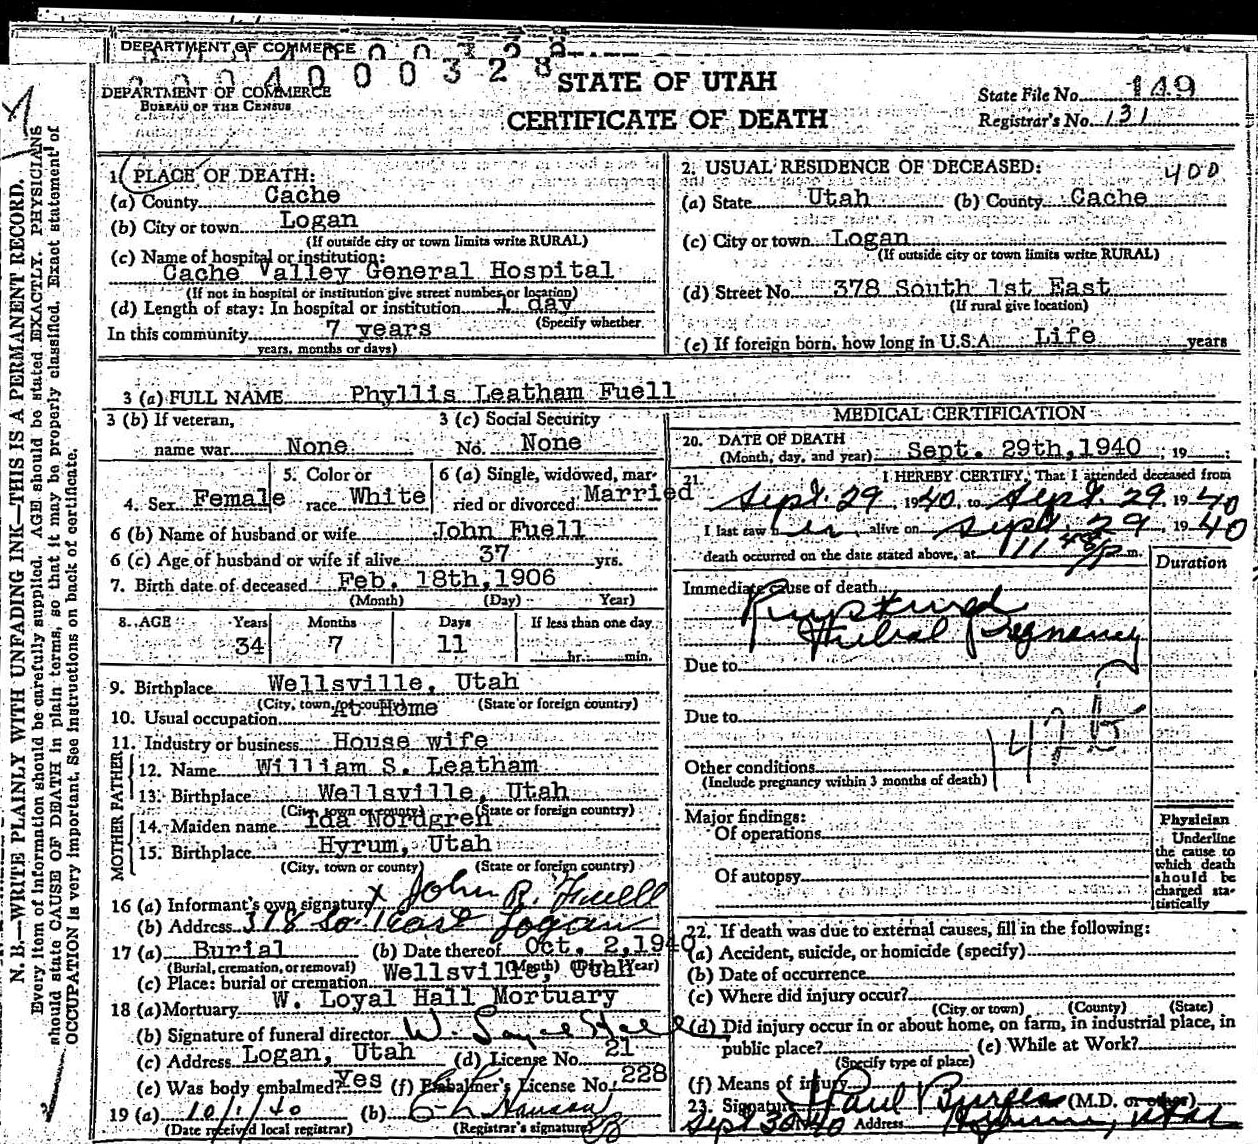 DEPARTMENT OF COMMERCE
0 0 0 4 0 0 0 0 3 2 8
DEPARTMENT OF COMMERCE
BUREAU OF THE CENSUS
STATE OF UTAH
CERTIFICATE OF DEATH
State File No. 149
Registrar's No. 131
N. B.—WRITE PLAINLY WITH UNFADING INK—THIS IS A PERMANENT RECORD.
Every item of information should be carefully supplied. AGE should be stated EXACTLY. PHYSICIANS
should state CAUSE OF DEATH in plain terms, so that it may be properly classified. Exact statement of
OCCUPATION is very important. See instructions on back of certificate.
1. PLACE OF DEATH:
(a) County Cache
(b) City or town Logan
(If outside city or town limits write RURAL)
(c) Name of hospital or institution:
Cache Valley General Hospital
(If not in hospital or institution give street number or location)
(d) Length of stay: In hospital or institution 1 day
(Specify whether
In this community 7 years
years, months or days)
2. USUAL RESIDENCE OF DECEASED: 400
(a) State Utah (b) County Cache
(c) City or town Logan
(If outside city or town limits write RURAL)
(d) Street No. 378 South 1st East
(If rural give location)
(e) If foreign born, how long in U.S.A. Life years
3 (a) FULL NAME Phyllis Leatham Fuell
3 (b) If veteran, 3 (c) Social Security
name war None No. None
4. Sex Female 5. Color or race White 6 (a) Single, widowed, married or divorced Married
6 (b) Name of husband or wife John Fuell
6 (c) Age of husband or wife if alive 37 yrs.
7. Birth date of deceased Feb. 18th, 1906
(Month) (Day) Year)
8. AGE Years Months Days If less than one day
34 7 11 hr. min.
9. Birthplace Wellsville, Utah
(City, town, or county) (State or foreign country)
10. Usual occupation At Home
11. Industry or business House wife
FATHER
12. Name William S. Leatham
13. Birthplace Wellsville, Utah
(City, town or county) (State or foreign country)
MOTHER
14. Maiden name Ida Nordgren
15. Birthplace Hyrum, Utah
(City, town or county) (State or foreign country)
16 (a) Informant's own signature x John R. Fuell
(b) Address 378 So. 1 East Logan
17 (a) Burial (b) Date thereof Oct. 2, 1940
(Burial, cremation, or removal) (Month) (Day) (Year)
(c) Place: burial or cremation Wellsville, Utah
18 (a) Mortuary W. Loyal Hall Mortuary
(b) Signature of funeral director W. Loyal Hall
(c) Address Logan, Utah (d) License No. 21
(e) Was body embalmed? Yes (f) Embalmer's License No. 228
19 (a) 10/1/40 (b)
(Date received local registrar) (Registrar's signature)
MEDICAL CERTIFICATION
20. DATE OF DEATH
(Month, day, and year) Sept. 29th, 1940, 19
21. I HEREBY CERTIFY, That I attended deceased from
Sept. 29, 1940, to Sept. 29, 1940
I last saw her alive on Sept. 29, 1940
death occurred on the date stated above, at 11 m.
Duration
Immediate cause of death
Ruptured
Tubal pregnancy
Due to
Due to
142b
Other conditions
(Include pregnancy within 3 months of death)
Major findings:
Of operations
Of autopsy
Physician
Underline
the cause to
which death
should be
charged sta-
tistically
22. If death was due to external causes, fill in the following:
(a) Accident, suicide, or homicide (specify)
(b) Date of occurrence
(c) Where did injury occur?
(City or town) (County) (State)
(d) Did injury occur in or about home, on farm, in industrial place, in
public place? (e) While at Work?
(Specify type of place)
(f) Means of injury
23. Signature Paul Burgess (M.D. or other)
Sept 30 40 Address Hyrum, Utah